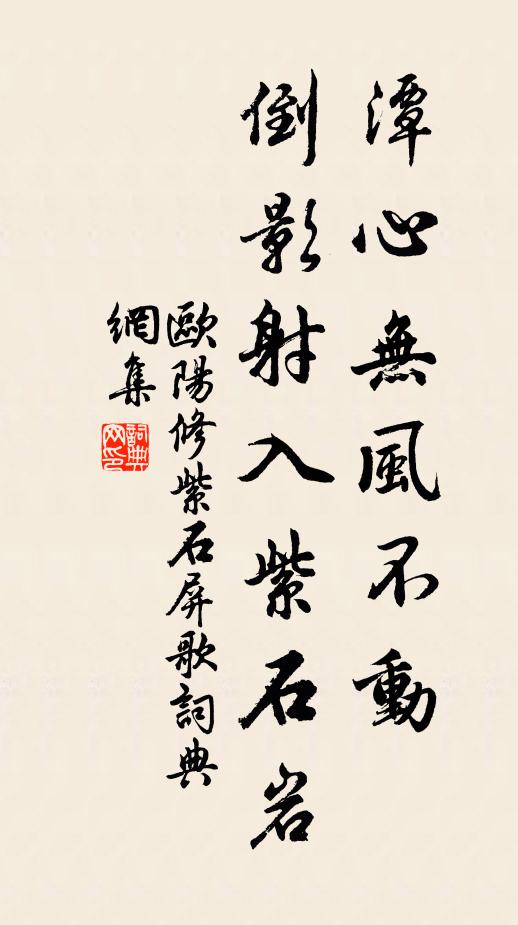 潭心無風不動
倒影射入紫石岩
歐陽修紫石屏歌詞典
網集
詞典
网印